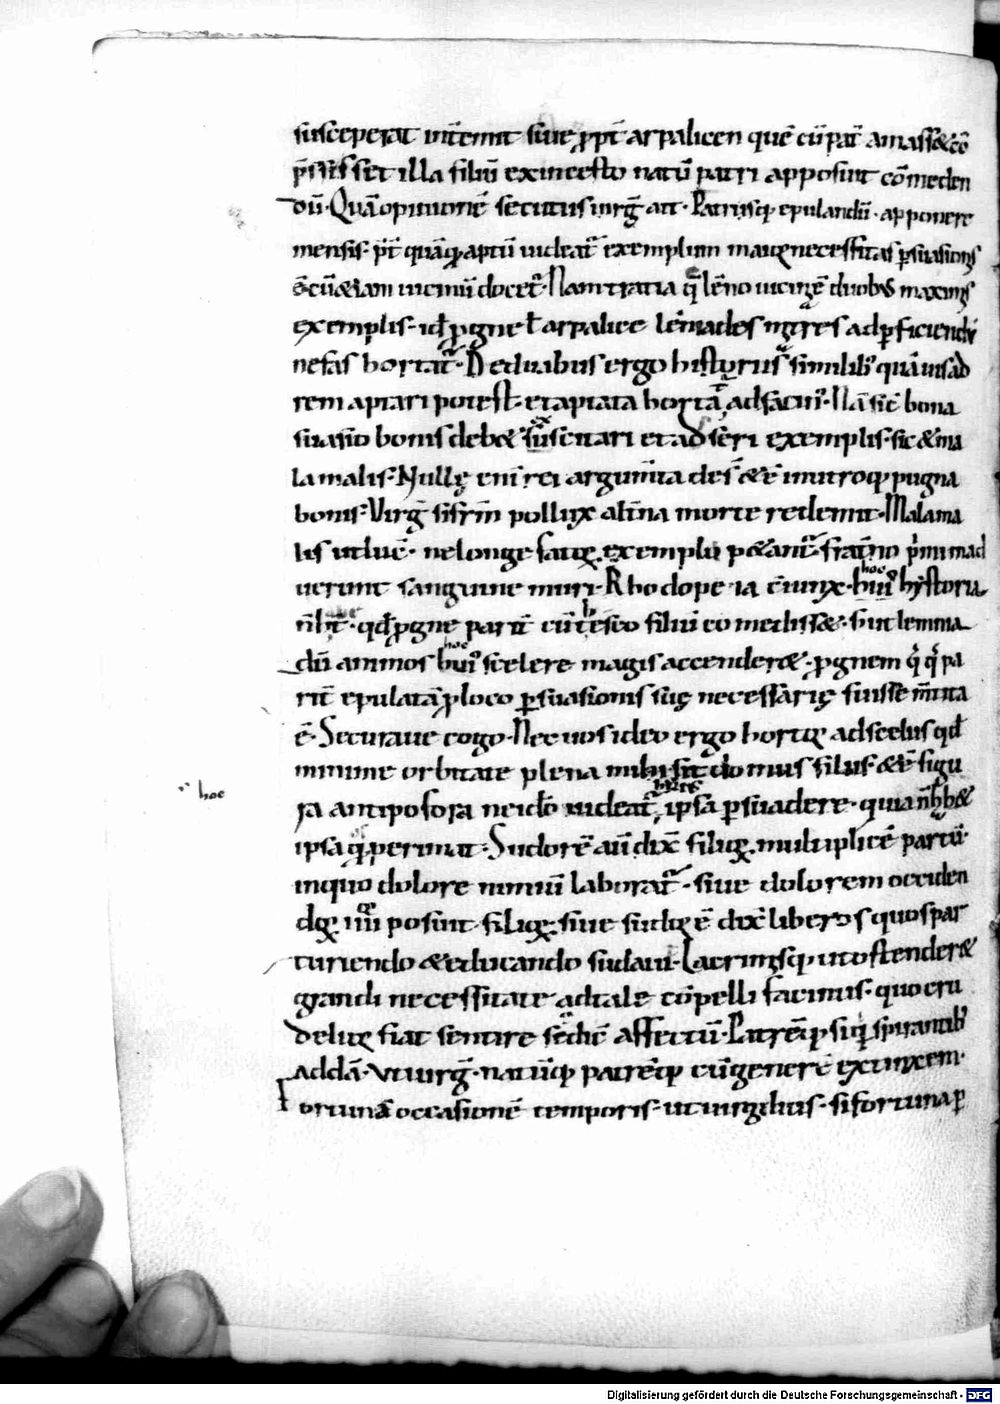 susceperat int̄emit siue ꝓpt̄ arpalicen quē cū pat̄ amass& cō
p̄ssisset illa filiū ex incesto natū patri apposuit cōmeden
dū· Quā opinionē secutus uirḡ ait· Patriisq; epulandū· apponere
mensis· pt̄ quāq̄ aptū uideat̄ exemplum maię necessitas ꝑsuasionis
ē cū &iam uicinū docet̄· Nam tratia q̄ lēno uicinę duobus maximis
exemplis· id ꝓgne t̄ arpalice lēniades mr̄es ad ꝑficiendū
nefas hortat̄· De duabus ergo historiis similib; quā uis ad
rem aptari potest· et aptata hortā ad facin̄· Nā sic̄ bona
suasio bonis deb& suscitari et adseri exemplis· sic & ma
la malis· Nullę eni rei argum̄ta des̄ &ē in utroq; pugna
bonis· Virḡ si fr̄m pollux alt̄na morte redemit· Mala ma
lis ut luc̄· ne longe fatię exemplū p&ant̄· frat̄no p̄mi mad
uerunt sanguine muri· Rhodope ia c̄iunx· hui; hystoria
n̄ hc̄· qd̄ ꝓgne parit̄ cū t̄eseo filiū comediss&· sunt lemnia
dū animos hui; scelere magis accender&· ꝓgnem q̄ q̄ pa
rit̄ epulatā ꝓ loco ꝑsuasionis suę necessarię fuisse m̄tita
ē· Secura ue cogo· Nec uos ideo ergo hortor ad scelus qd̄
minime orbitate plena mihi sit domus filiis· &ē figu
ra antiposora ne ido uideat̄ ipsa ꝑsuadere· quia n̄ hb&
hoc
ipsa q̄ perimat· Sudorē aū dix̄ filiię multiplicē partū·
in quo dolore nimiū laborat̄· siue dolorem occiden
dę posuit filię· siue sudię ē dix̄ liberos quos par
turiendo & educando sudaui· Lacrimisq; ut ostender&
grandi necessitate ad tale cōpelli facinus· quo cru
delię fiat sentire affectū· Patrēq; suq; spirantib;
Addā· Vt uirḡ· natūq; patrēq; cū genere extinxem·
Fortunā occasionē temporis· ut uirgilius· si fortuna ꝑ
Digitalisierung gefördert durch die Deutsche Forschungsgemeinschaft - DFG